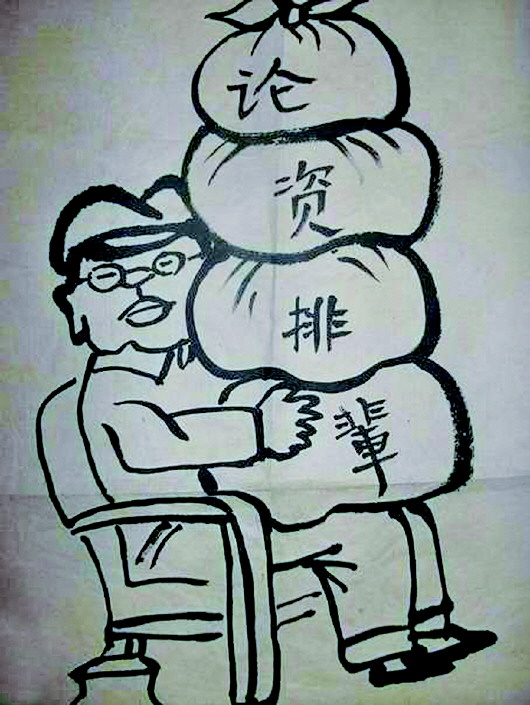 论
资
排
辈